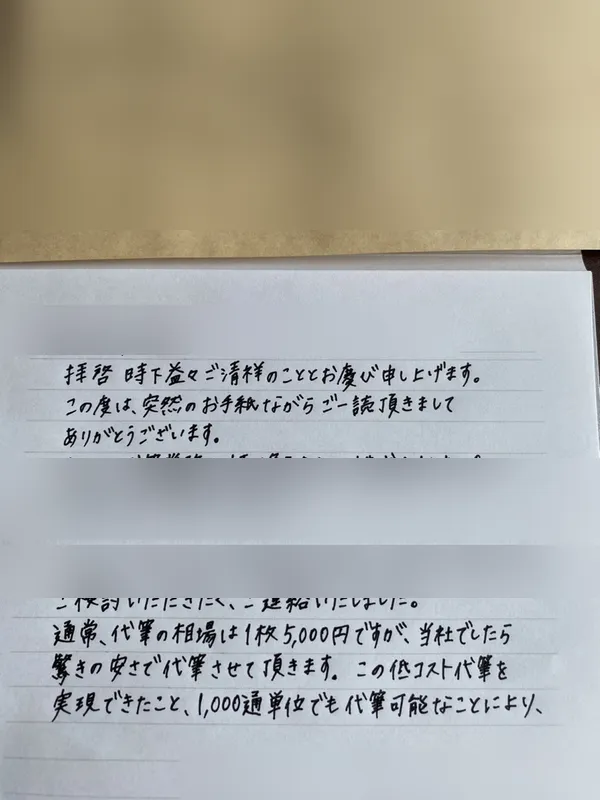 拝啓 時下益々ご清祥のこととお慶び申し上げます。
この度は、突然のお手紙ながらご一読頂きまして
ありがとうございます。
ご検討いただきたく、ご連絡いたしました。
通常、代筆の相場は1枚5,000円ですが、当社でしたら
驚きの安さで代筆させて頂きます。この低コスト代筆を
実現できたこと、1,000通単位でも代筆可能なことにより、